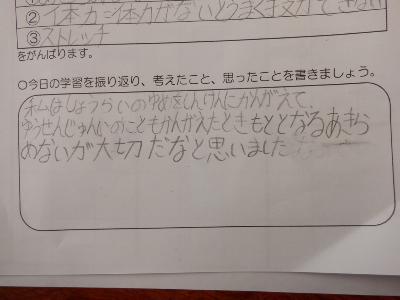 ②体力=体力がないとうまく技ができない
③ストレッチ
をがんばります。
○今日の学習を振り返り、考えたこと、思ったことを書きましょう。
私はしょうらいのゆめをしんけんにかんがえて、
ゆうせんじゅんいのこともかんがえたときもととなるあきら
めないが大切だなと思いました